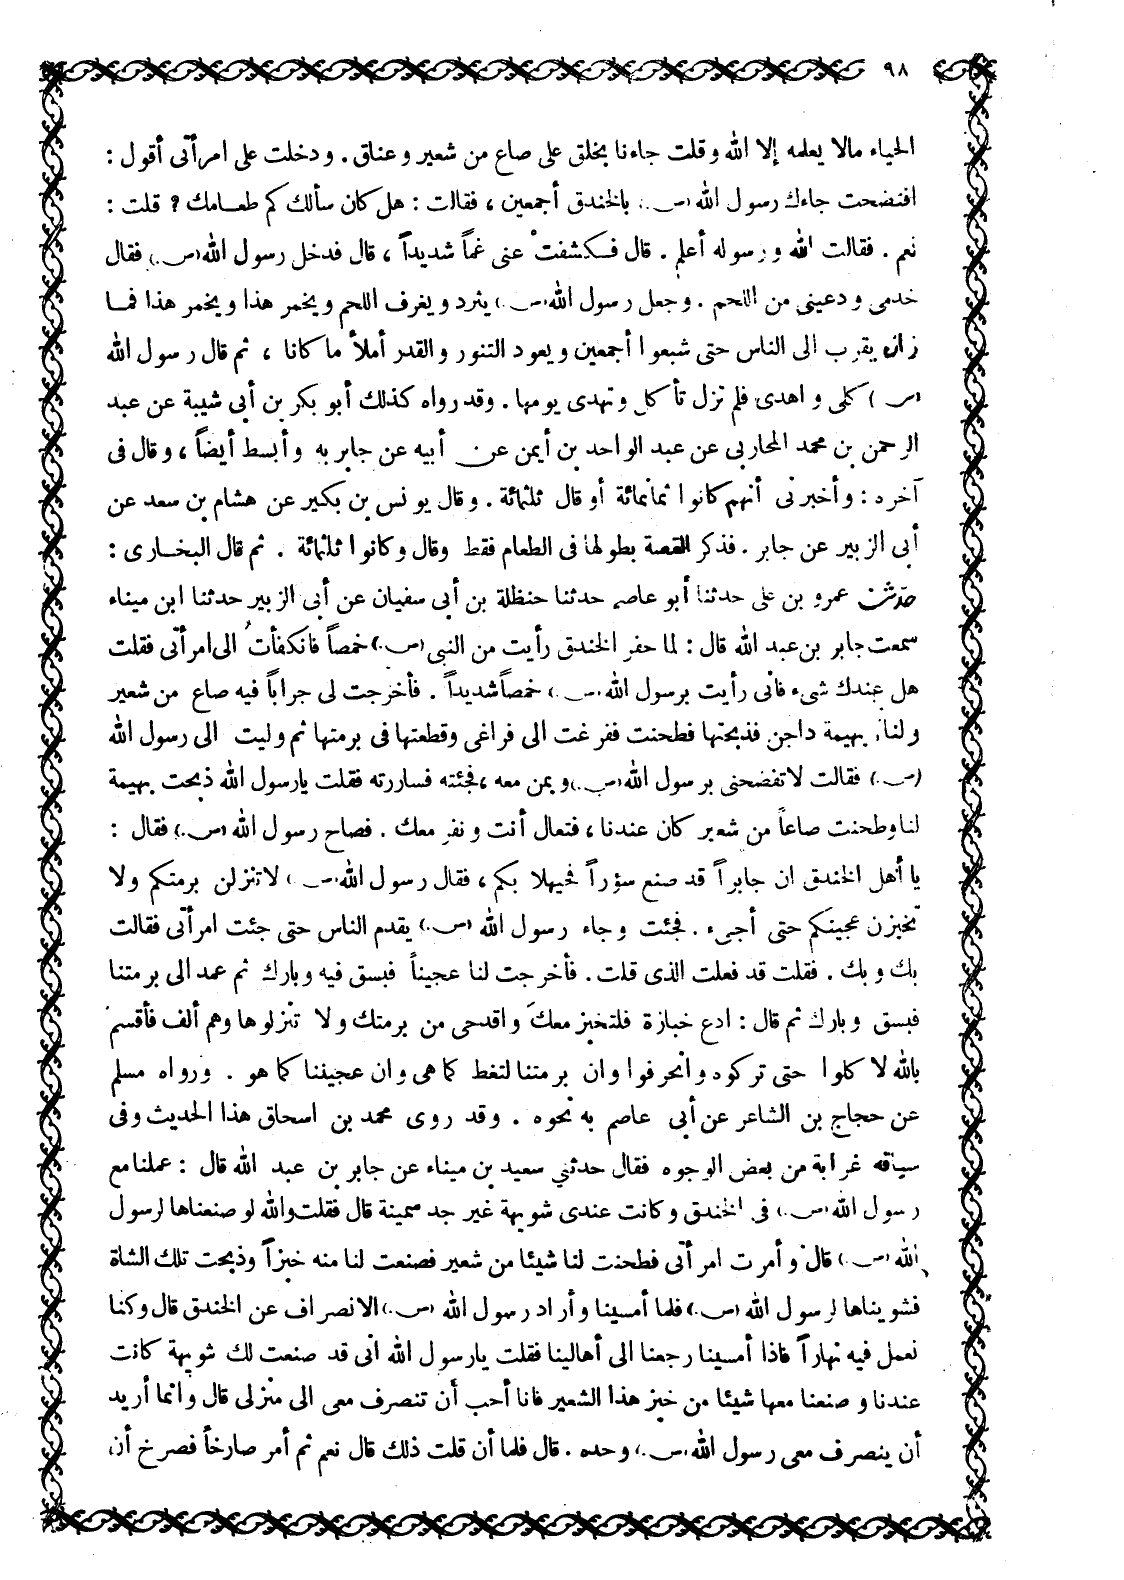 ٩٨
الحياء مالا يعلمه إلا الله وقلت جاءنا بخلق على صاع من شعير وعناق . ودخلت على امرأتى أقول :
افتضحت جاءك رسول الله (ص) بالخندق أجمعين ، فقالت : هل كان سألك كم طعامك ? قلت :
نعم . فقالت الله ورسوله أعلم . قال فكشفتْ عنى غماً شديداً ، قال فدخل رسول الله (ص) فقال
خدمى ودعينى من اللحم . وجعل رسول الله (ص) يثرد ويغرف اللحم ويخمر هذا ويخمر هذا فما
زال يقرب الى الناس حتى شبعوا أجمعين ويعود التنور والقدر أملأ ما كانا ، ثم قال رسول الله
(ص) كلى واهدى فلم نزل تأكل وتهدى يومها . وقد رواه كذلك أبو بكر بن أبى شيبة عن عبد
الرحمن بن محمد المحاربى عن عبد الواحد بن أيمن عن أبيه عن جابر به وأبسط أيضاً ، وقال فى
آخره : وأخبرنى أنهم كانوا ثمانمائة أو قال ثلثمائة . وقال يونس بن بكير عن هشام بن سعد عن
أبى الزبير عن جابر . فذكر القصة بطولها فى الطعام فقط وقال وكانوا ثلثمائة . ثم قال البخارى :
حدثنا عمرو بن على حدثنا أبو عاصم حدثنا حنظلة بن أبى سفيان عن أبى الزبير حدثنا ابن ميناء
سمعت جابر بن عبد الله قال : لما حفر الخندق رأيت من النبى (ص) خمصاً فانكفأتُ الى امرأتى فقلت
هل عندك شىء فانى رأيت برسول الله (ص) خمصاً شديداً . فأخرجت لى جراباً فيه صاع من شعير
ولنا بهيمة داجن فذبحتها فطحنت ففرغت الى فراغى وقطعتها فى برمتها ثم وليت الى رسول الله
(ص) فقالت لا تفضحنى برسول الله (ص) وبمن معه ، فجئته فساررته فقلت يارسول الله ذبحت بهيمة
لنا وطحنت صاعاً من شعير كان عندنا ، فتعال أنت ونفر معك . فصاح رسول الله (ص) فقال :
يا أهل الخندق ان جابراً قد صنع سؤراً فحيهلا بكم ، فقال رسول الله (ص) لا تنزلن برمتكم ولا
تخبزن عجينكم حتى أجىء . فجئت وجاء رسول الله (ص) يقدم الناس حتى جئت امرأتى فقالت
بك وبك . فقلت قد فعلت الذى قلت . فأخرجت لنا عجيناً فبسق فيه وبارك ثم عمد الى برمتنا
فبسق وبارك ثم قال : ادع خبازة فلتخبز معكَ واقدحى من برمتك ولا تنزلوها وهم ألف فأقسم
بالله لا كلوا حتى تركوه وانحرفوا وان برمتنا لتغط كما هى وان عجيننا كما هو . ورواه مسلم
عن حجاج بن الشاعر عن أبى عاصم به نحوه . وقد روى محمد بن اسحاق هذا الحديث وفى
سياقه غرابة من بعض الوجوه فقال حدثني سعيد بن ميناء عن جابر بن عبد الله قال : عملنا مع
رسول الله (ص) فى الخندق وكانت عندى شويهة غير جد سمينة قال فقلت والله لو صنعناها لرسول
الله (ص) قال وأمرت امرأتى فطحنت لنا شيئا من شعير فصنعت لنا منه خبزاً وذبحت تلك الشاة
فشويناها لرسول الله (ص) فلما أمسينا وأراد رسول الله (ص) الانصراف عن الخندق قال وكنا
نعمل فيه نهاراً فاذا أمسينا رجعنا الى أهالينا فقلت يارسول الله انى قد صنعت لك شويهة كانت
عندنا وصنعنا معها شيئا من خبز هذا الشعير فانا أحب أن تنصرف معى الى منزلى قال وانما أريد
أن ينصرف معى رسول الله (ص) وحده . قال فلما أن قلت ذلك قال نعم ثم أمر صارخاً فصرخ أن